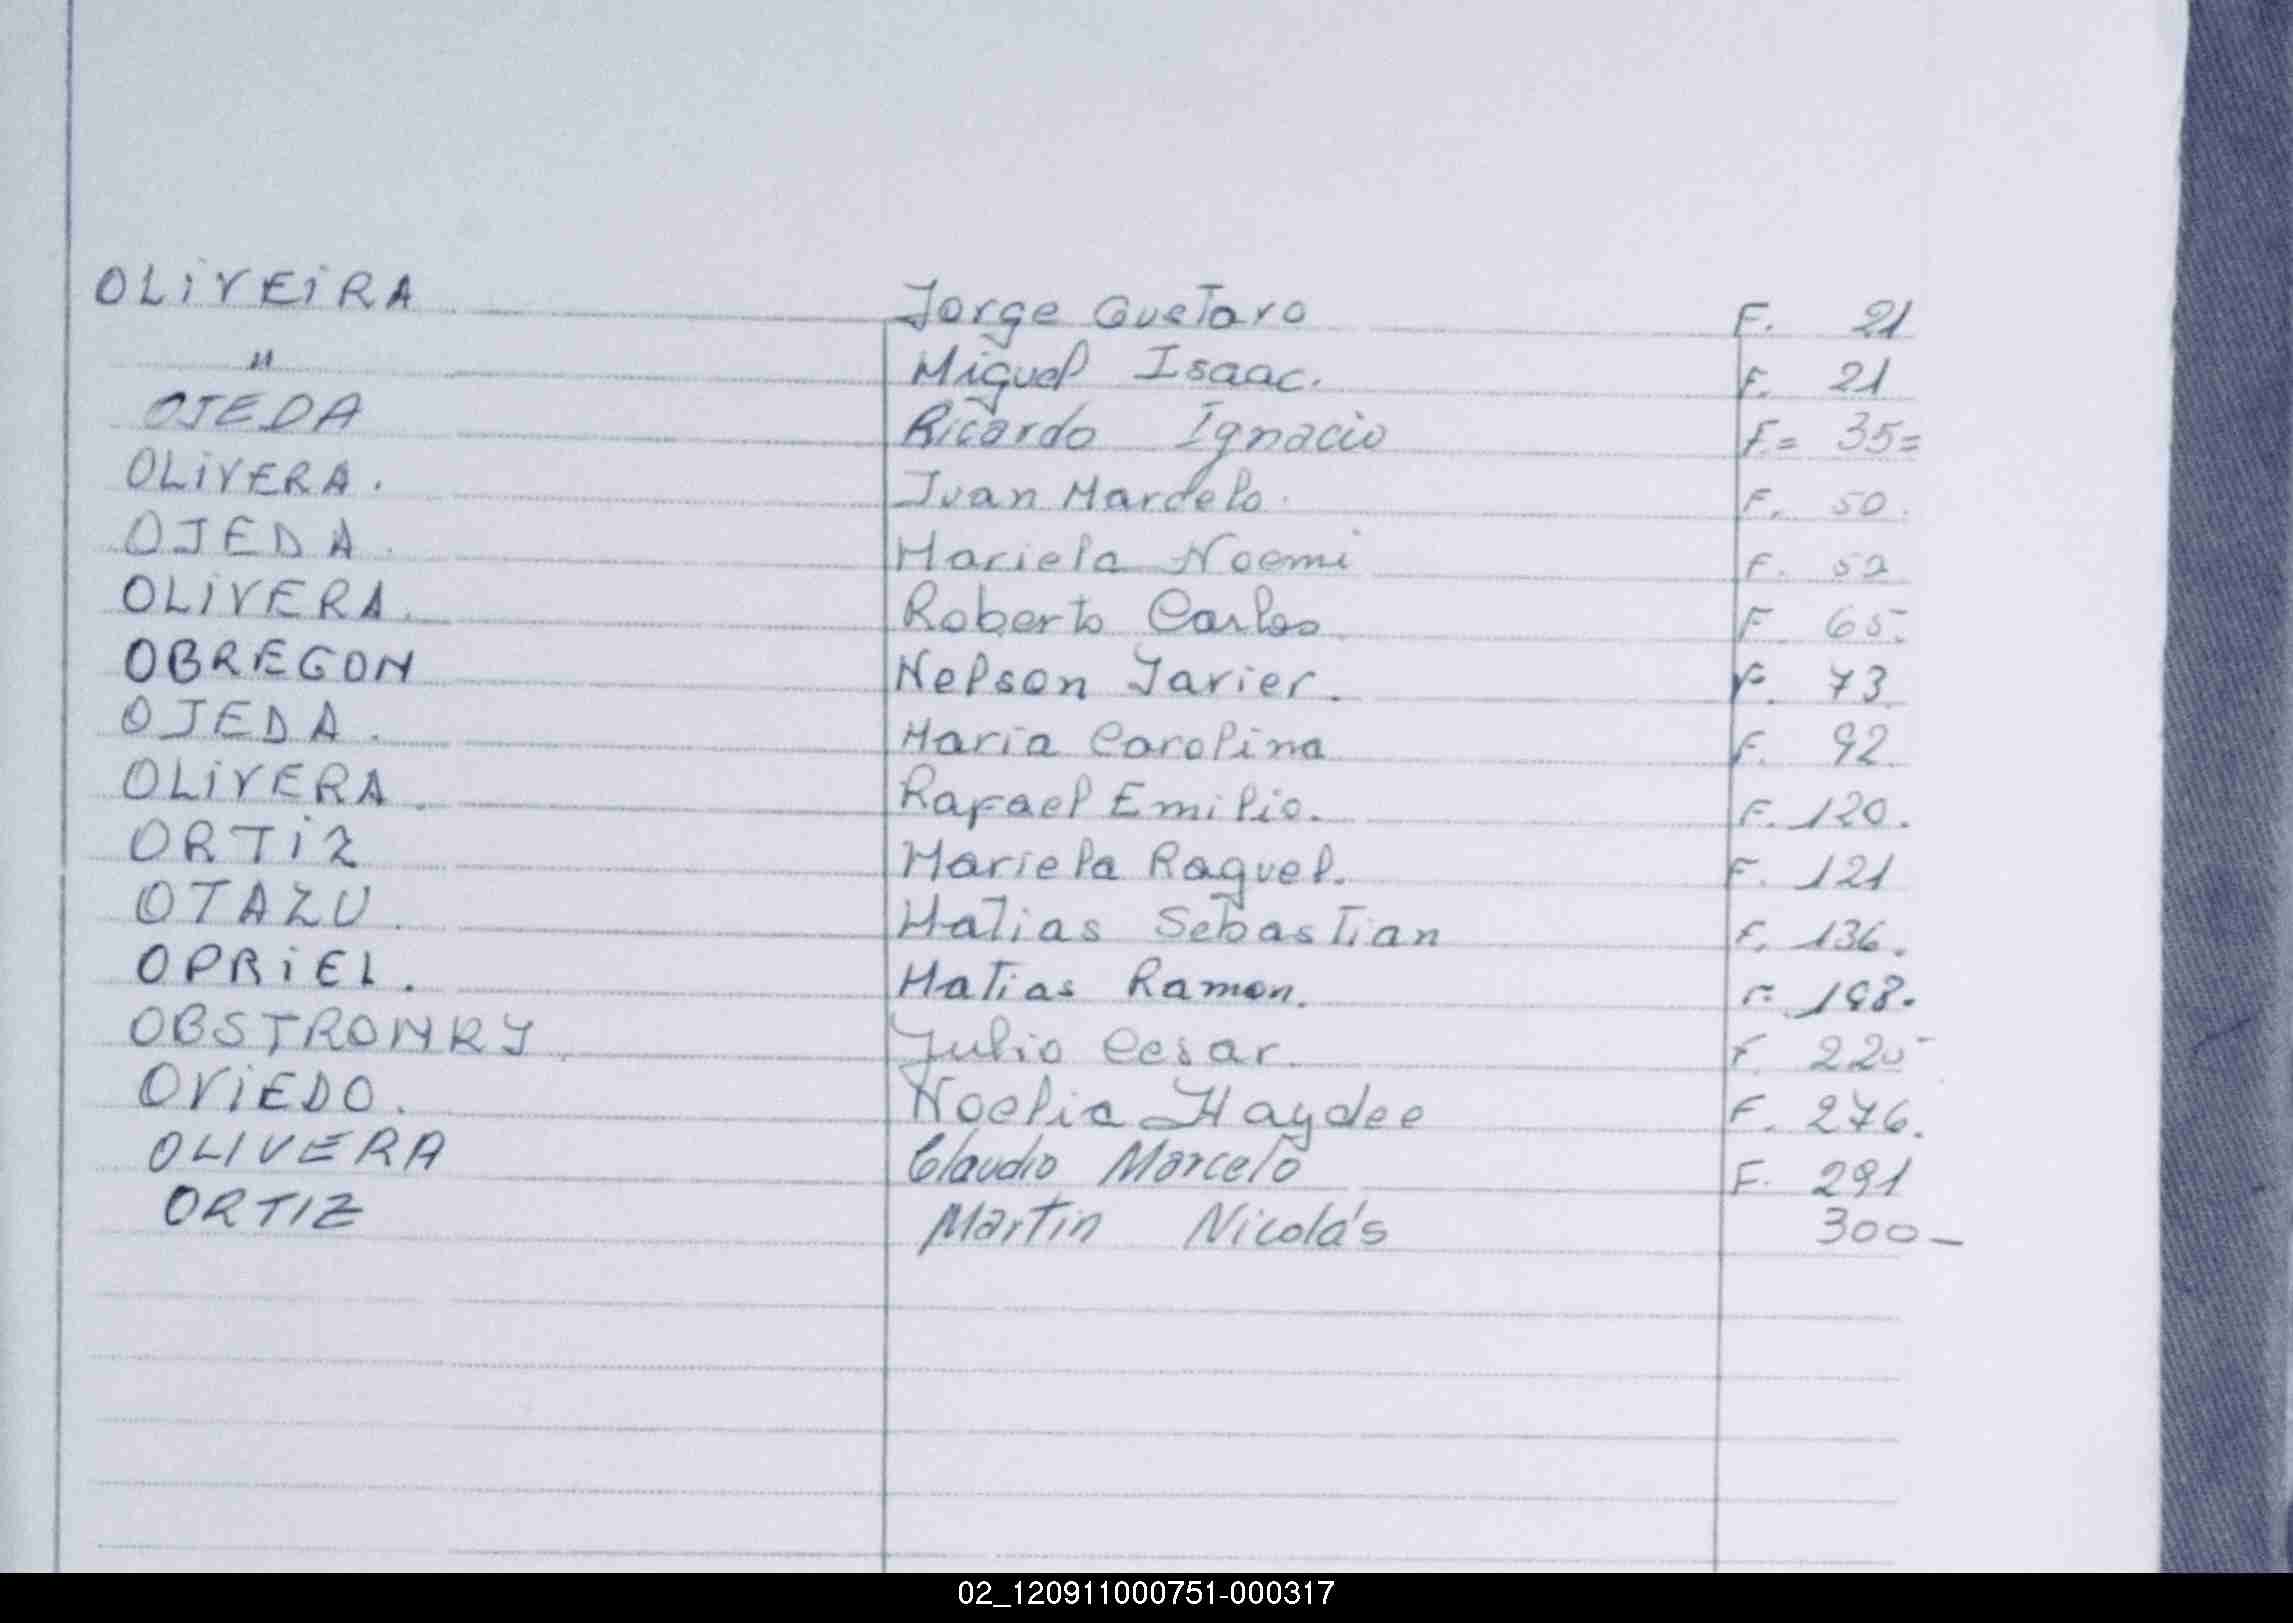 OLiVEiRA Jorge Gustavo F. 21
" Miguel Isaac. F. 21
OJEDA Ricardo Ignacio F.= 35=
OLiVERA. Ivan Marcelo. F. 50.
OJEDA. Mariela Noemi F. 52
OLiVERA. Roberto Carlos F. 65.
OBREGON Nelson Javier. F. 73.
OJEDA. Maria Carolina F. 92.
OLiVERA. Rafael Emilio. F. 120.
ORTiZ Mariela Raquel. F. 121
OTAZU. Matias Sebastian F. 136.
OPRiEL. Matias Ramon. F. 198.
OBSTRONKY. Julio Cesar. F.
OViEDO. Noelia Haydee F. 276.
OLIVERA Claudio Marcelo F. 291
ORTIZ Martin Nicolás 300-
02_120911000751-000317